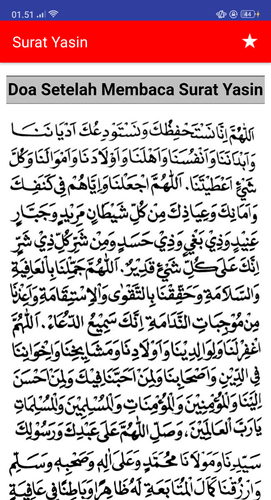 01.51
44
Surat Yasin
Doa Setelah Membaca Surat Yasin
اَللّٰهُمَّ اِنَّا نَسْتَحْفِظُكَ وَنَسْتَوْدِعُكَ اَدْيَانَنَا
وَاَبْدَانَنَا وَاَنْفُسَنَا وَاَهْلَنَا وَاَوْلَادَنَا وَاَمْوَالَنَا وَكُلَّ
شَيْءٍ اَعْطَيْتَنَا. اَللّٰهُمَّ اجْعَلْنَا وَاِيَّاهُمْ فِيْ كَنَفِكَ
وَاَمَانِكَ وَعِيَاذِكَ مِنْ كُلِّ شَيْطَانٍ مَرِيْدٍ وَجَبَّارٍ
عَنِيْدٍ وَذِيْ بَغْيٍ وَذِيْ حَسَدٍ وَمِنْ شَرِّ كُلِّ ذِيْ شَرٍّ
اِنَّكَ عَلٰى كُلِّ شَيْءٍ قَدِيْرٌ. اَللّٰهُمَّ جَمِّلْنَا بِالْعَافِيَةِ
وَالسَّلَامَةِ وَحَقِّقْنَا بِالتَّقْوٰى وَالْاِسْتِقَامَةِ وَاَعِذْنَا
مِنْ مُوْجِبَاتِ النَّدَامَةِ اِنَّكَ سَمِيْعُ الدُّعَاءِ. اَللّٰهُمَّ
اغْفِرْ لَنَا وَلِوَالِدِيْنَا وَاَوْلَادِنَا وَمَشَايِخِنَا وَاِخْوَانِنَا
فِي الدِّيْنِ وَاَصْحَابِنَا وَلِمَنْ اَحَبَّنَا فِيْكَ وَلِمَنْ اَحْسَنَ
اِلَيْنَا وَلِلْمُؤْمِنِيْنَ وَالْمُؤْمِنَاتِ وَالْمُسْلِمِيْنَ وَالْمُسْلِمَاتِ
يَارَبَّ الْعَالَمِيْنَ. وَصَلِّ اللّٰهُمَّ عَلٰى عَبْدِكَ وَرَسُوْلِكَ
سَيِّدِنَا وَمَوْلَانَا مُحَمَّدٍ وَعَلٰى اٰلِهِ وَصَحْبِهِ وَسَلِّمْ
وَارْزُقْنَا كَمَالَ الْمُتَابَعَةِ لَهُ ظَاهِرًا وَبَاطِنًا فِيْ عَافِيَةٍ